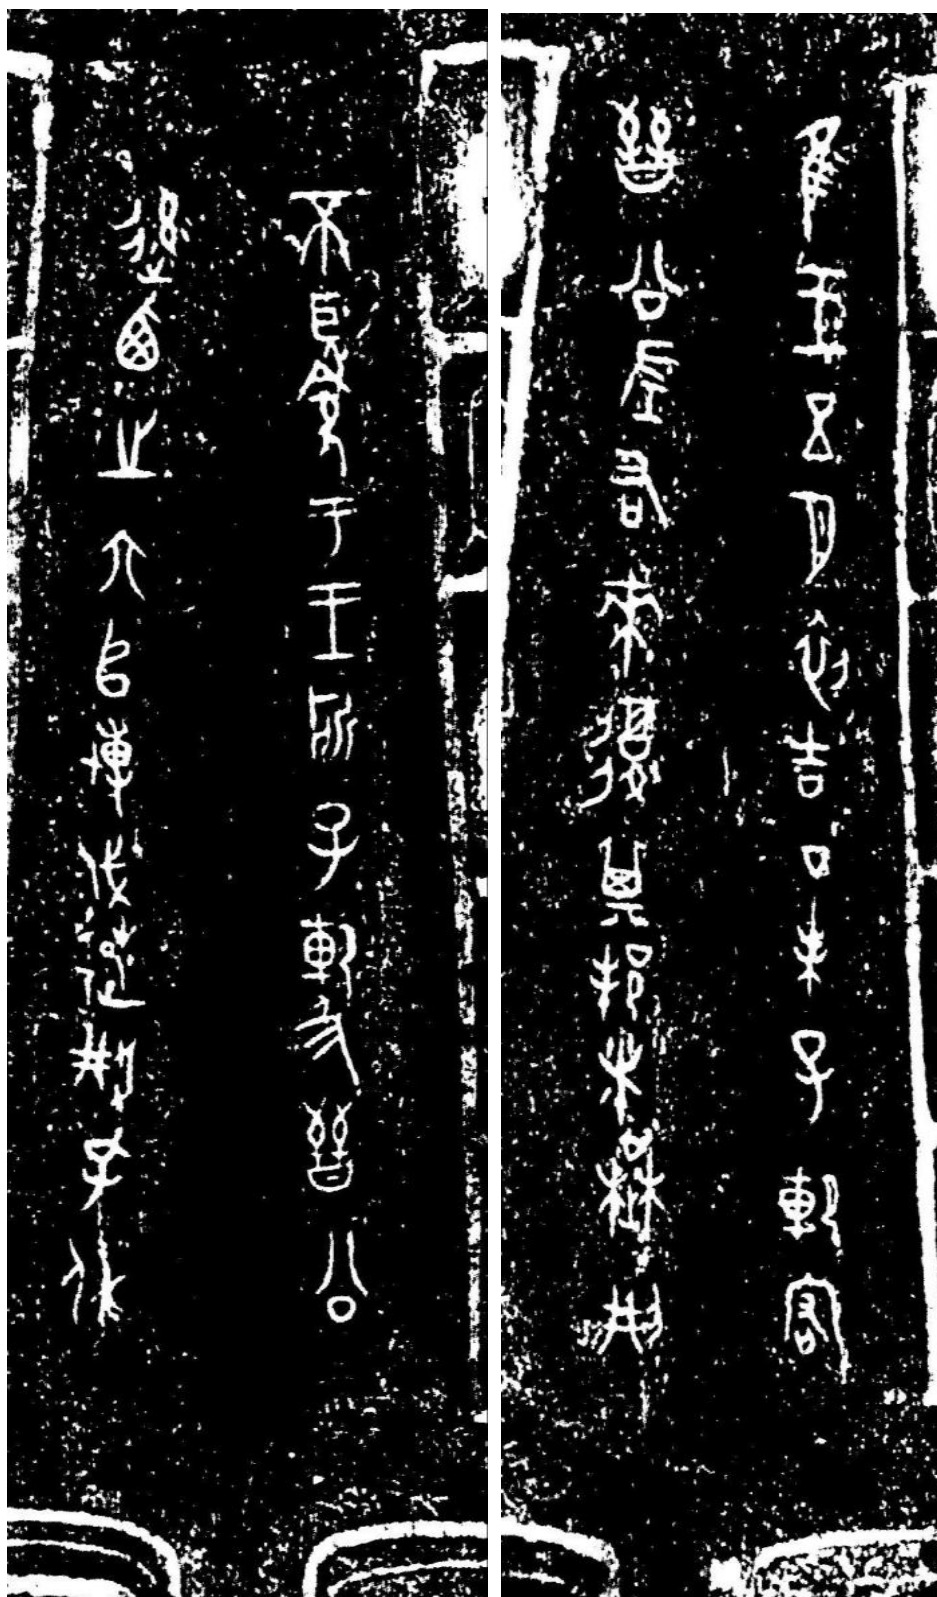 隹王五月初吉丁未子犯佑
晉公左右來復其邦者楚荊
不聽命于王所子犯及晉公
率西之六𠂤博伐楚荊孔休